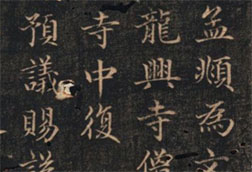 孟頫為文
龍興寺僧
寺中復
預議賜